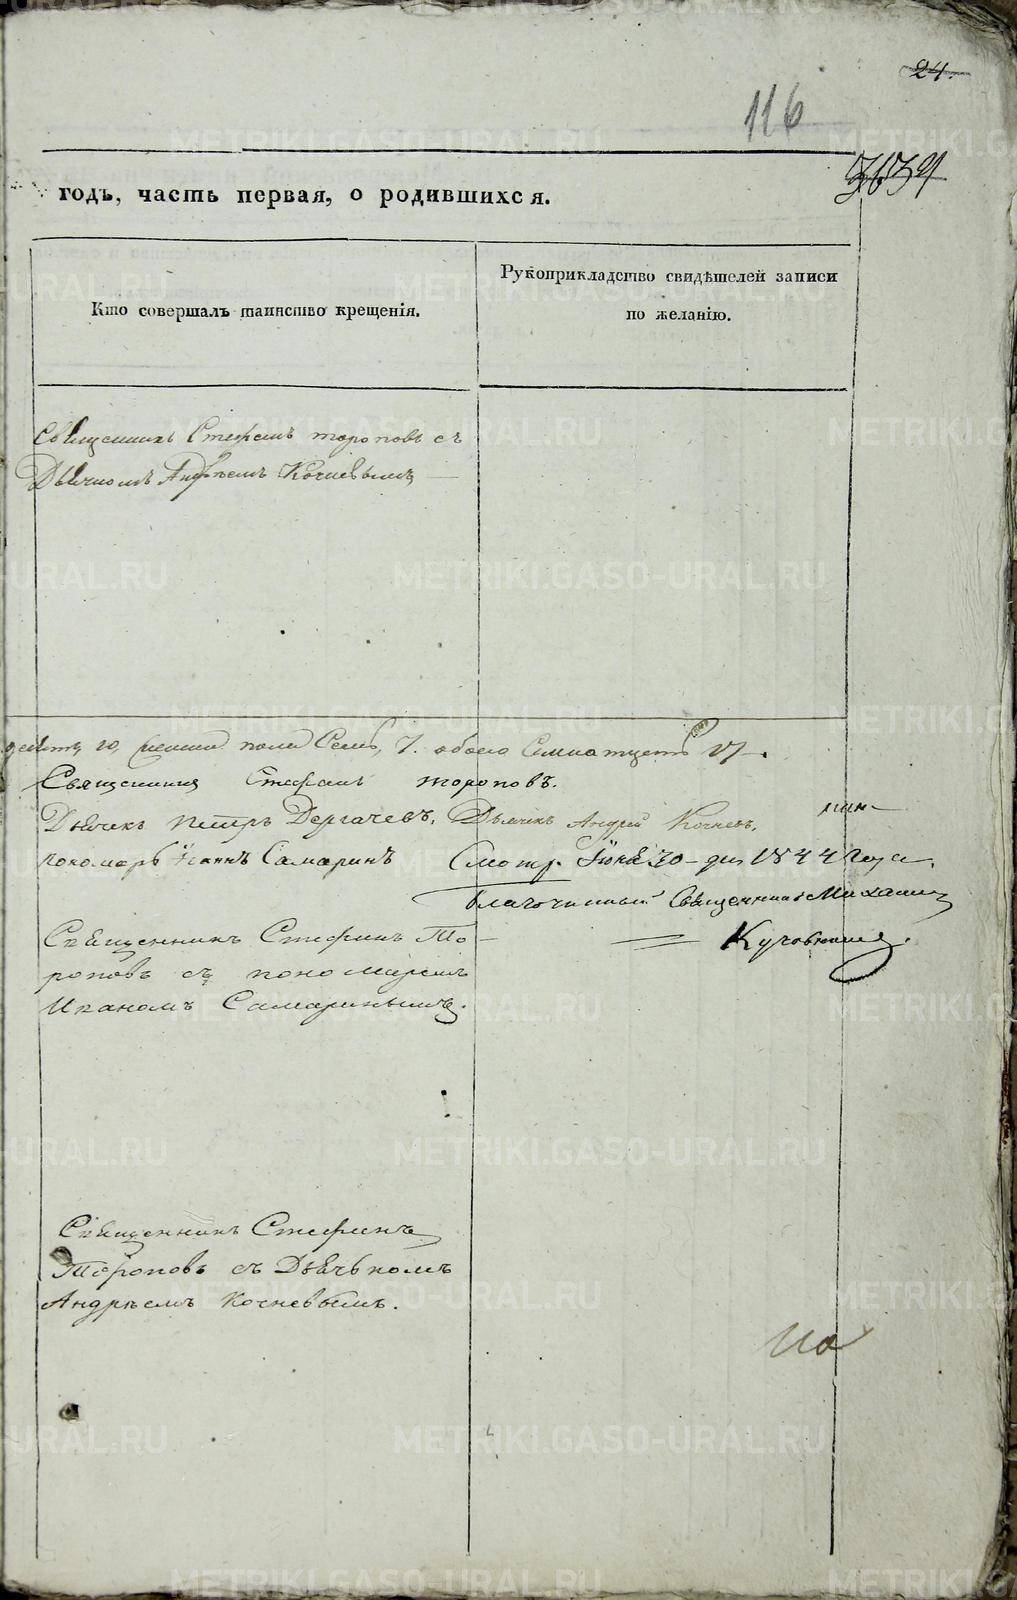 24.
116
годъ, часть первая, о родившихся.
Кто совершалъ таинство крещенія.
Рукоприкладство свидѣтелей записи
по желанію.
Священникъ Стефанъ тороповъ съ
Дьячкомъ Андрѣемъ Кочневымъ
десять 10, женска пола Семь, 7. обоего Семнатцеть 17.
Священникъ Стефанъ тороповъ.
Дьячекъ Петръ Дергачевъ, Дьячекъ Андрей Кочневъ,
пономарь Іоаннъ Самаринъ Смотр. Іюня 30 дня 1844 года.
Благочинный Священникъ Михаилъ
Священникъ Стефанъ То-
роповъ съ пономаремъ
Иваномъ Самаринымъ.
Священникъ Стефанъ
Тороповъ съ Дьячькомъ
Андрѣемъ Кочневымъ.
METRIKI.GASO-URAL.RU